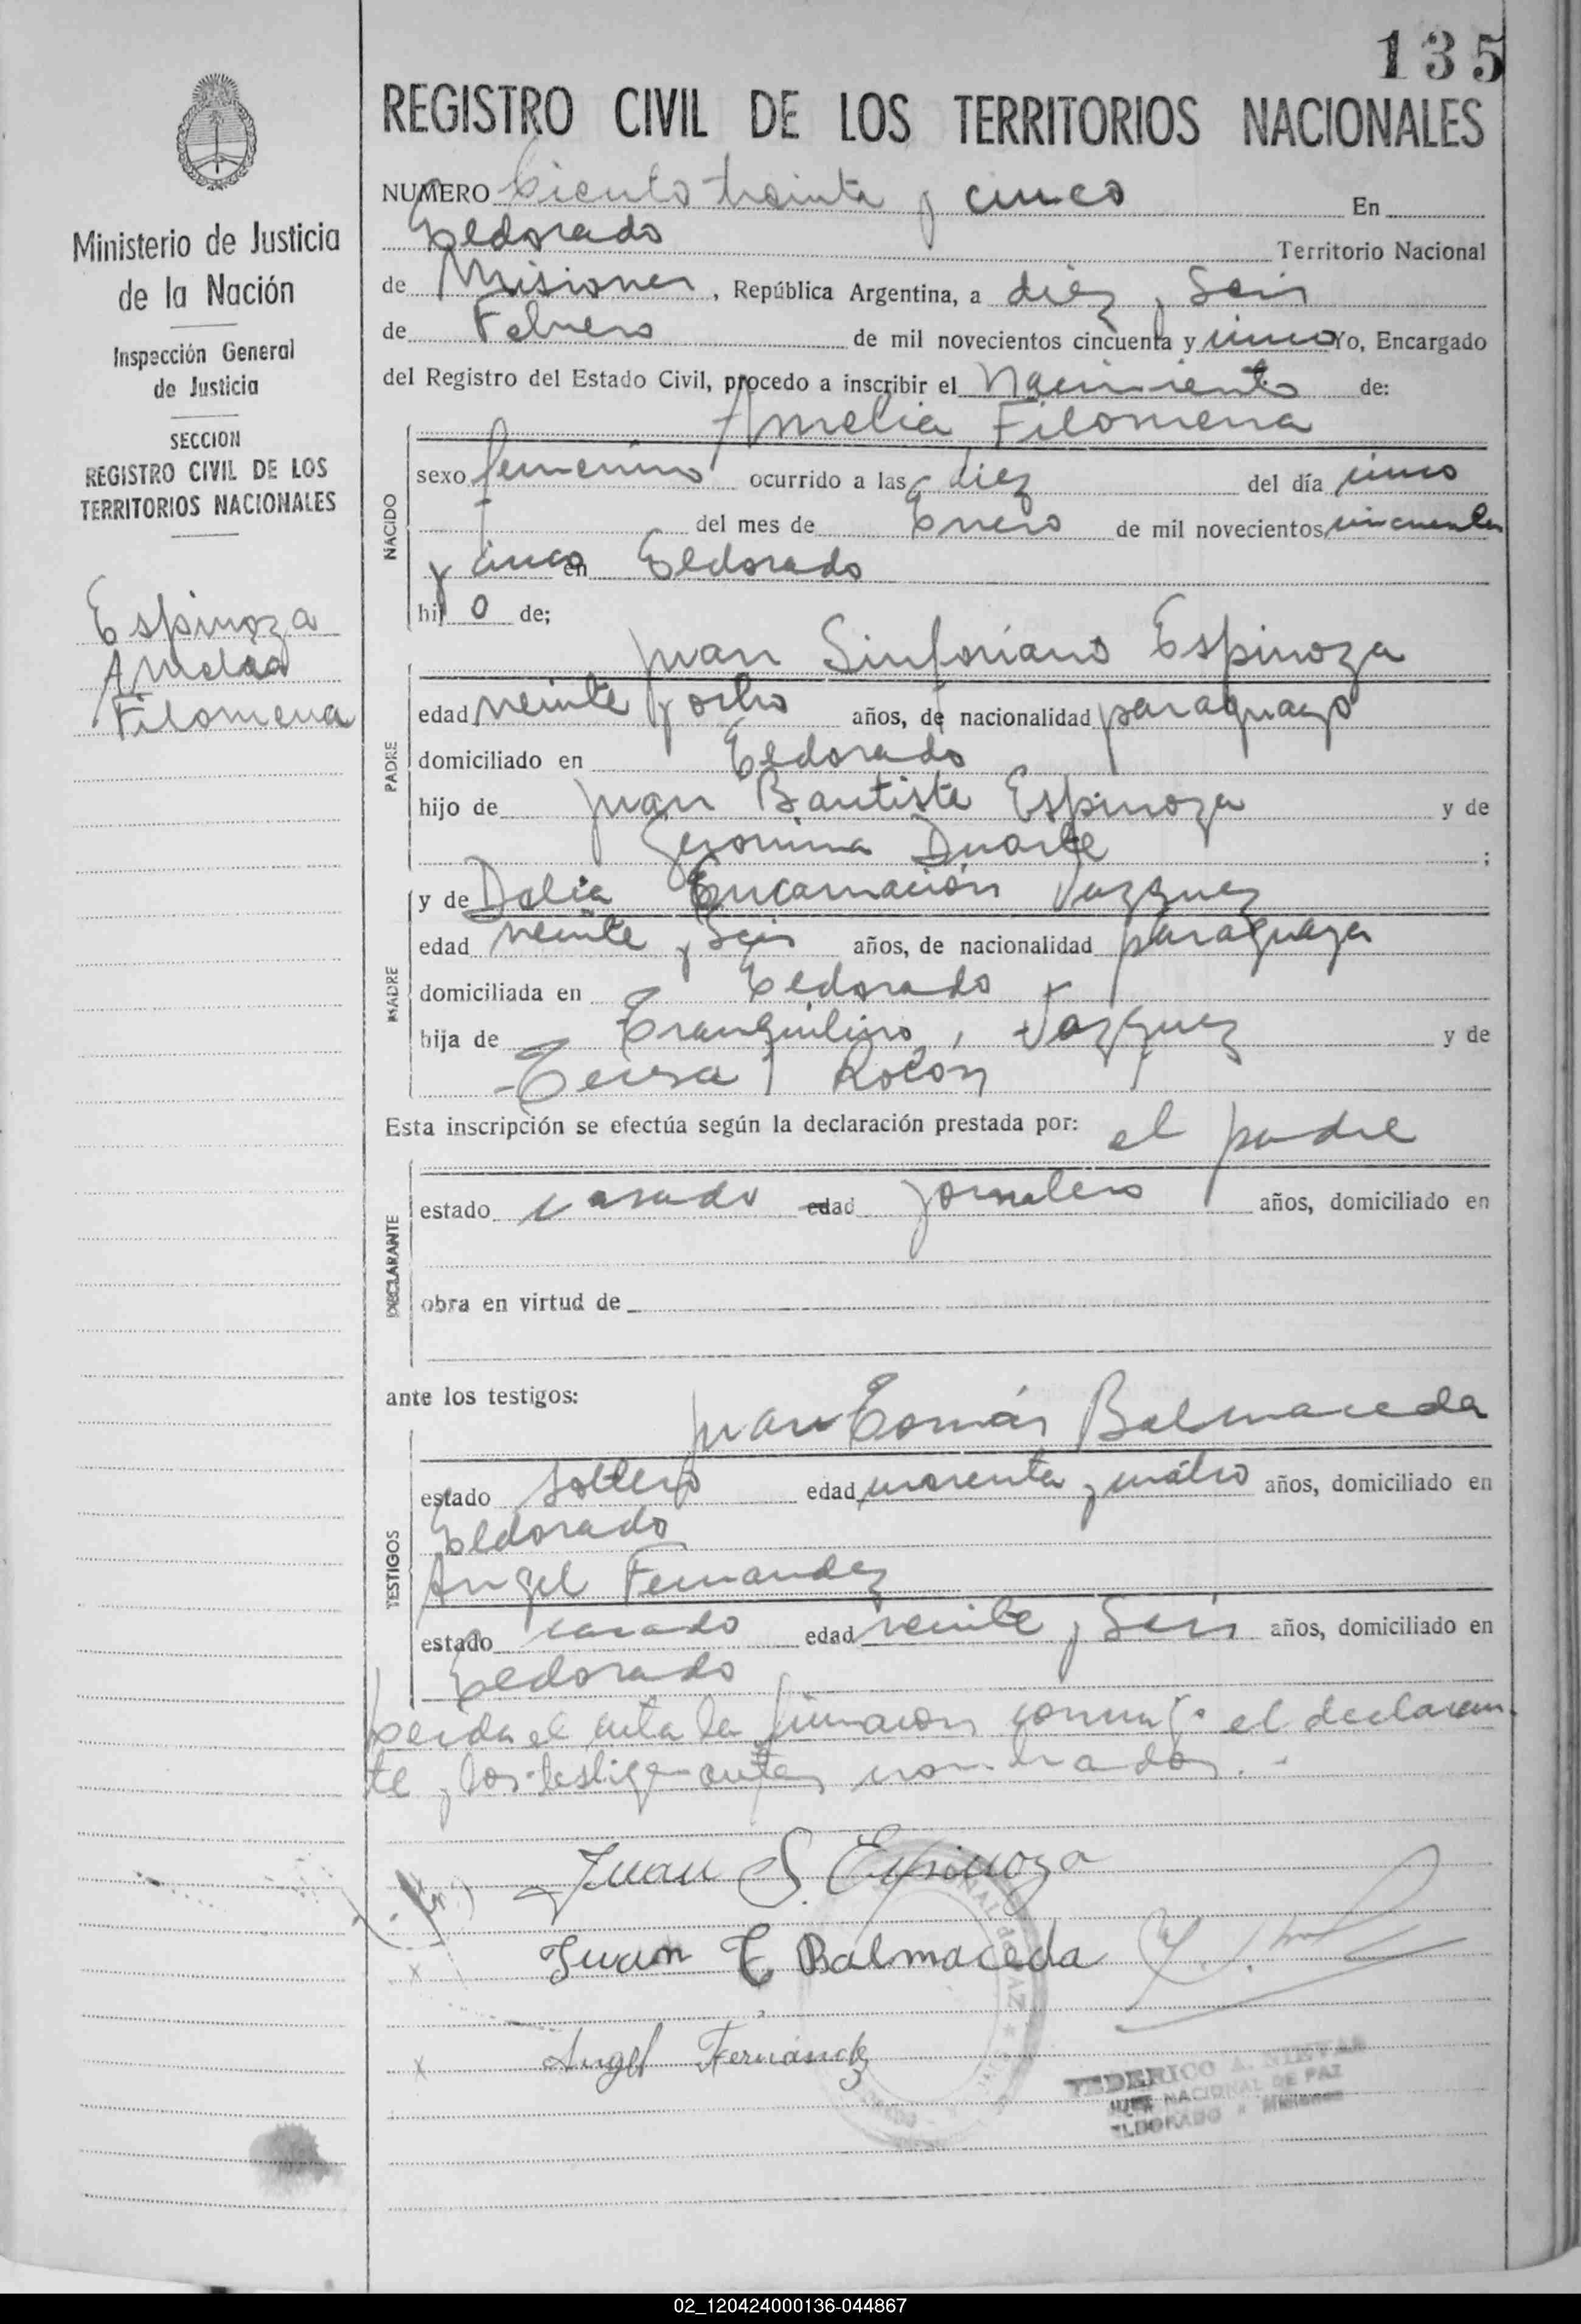 135
REGISTRO CIVIL DE LOS TERRITORIOS NACIONALES
Ministerio de Justicia
de la Nación
Inspección General
de Justicia
SECCION
REGISTRO CIVIL DE LOS
TERRITORIOS NACIONALES
Espinoza
Amelia
Filomena
NUMERO Ciento treinta y cinco En
Eldorado Territorio Nacional
de Misiones, República Argentina, a diez y Seis
de Febrero de mil novecientos cincuenta y cinco Yo, Encargado
del Registro del Estado Civil, procedo a inscribir el Nacimiento de:
Amelia Filomena
NACIDO
sexo femenino ocurrido a las diez del día cinco
del mes de Enero de mil novecientos cincuenta
y cinco en Eldorado
hij o de;
Juan Sinforiano Espinoza
PADRE
edad veinte y ocho años, de nacionalidad paraguayo
domiciliado en Eldorado
hijo de Juan Bautista Espinoza y de
Geronima Duarte ;
y de Dalia Encarnación Vazquez
MADRE
edad veinte y Seis años, de nacionalidad paraguaya
domiciliada en Eldorado
hija de Tranquilino Vazquez y de
Teresa Rolón
Esta inscripción se efectúa según la declaración prestada por: el padre
DECLARANTE
estado casado edad jornalero años, domiciliado en
obra en virtud de
ante los testigos:
Juan Tomás Balmaceda
TESTIGOS
estado Soltero edad cuarenta y cuatro años, domiciliado en
Eldorado
Angel Fernandez
estado casado edad veinte y Seis años, domiciliado en
Eldorado
Leida el acta la firmaron conmigo el declaran-
te y los testigos antes nombrados.-
Juan S. Espinoza
Juan T Balmaceda
Angel Fernández
FEDERICO A.
JUEZ NACIONAL DE PAZ
ELDORADO - Misiones
02_120424000136-044867